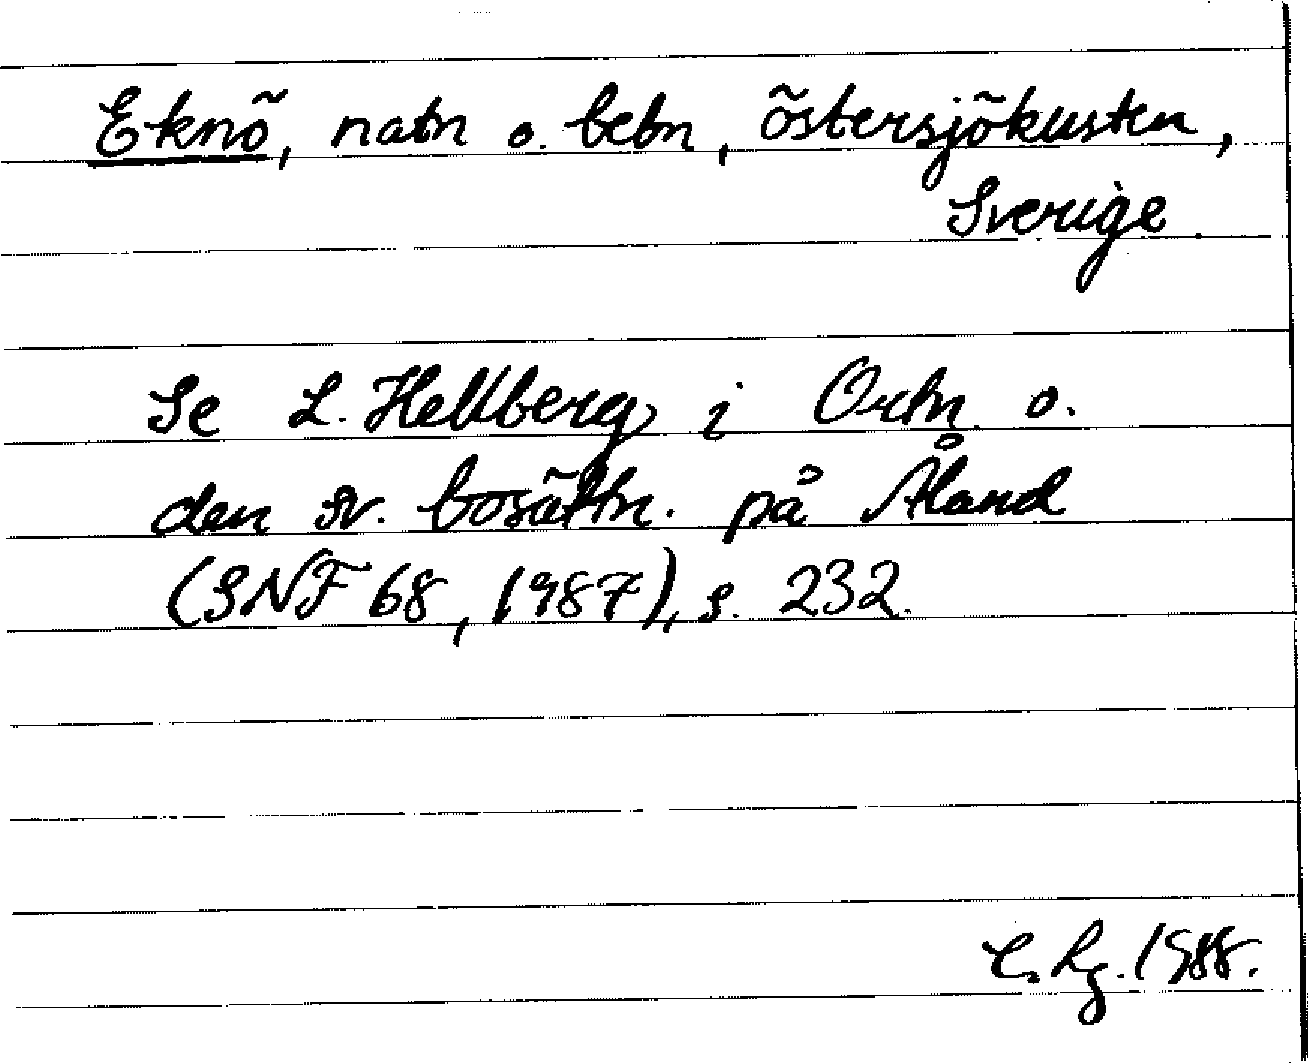 Eknö, natn o. bebn, östersjökusten,
Sverige.
Se L. Hellberg i Ortn. o.
den sv. bosättn. på Åland
(SNF 68, 1987), s. 232.
C. Lg. 1988.